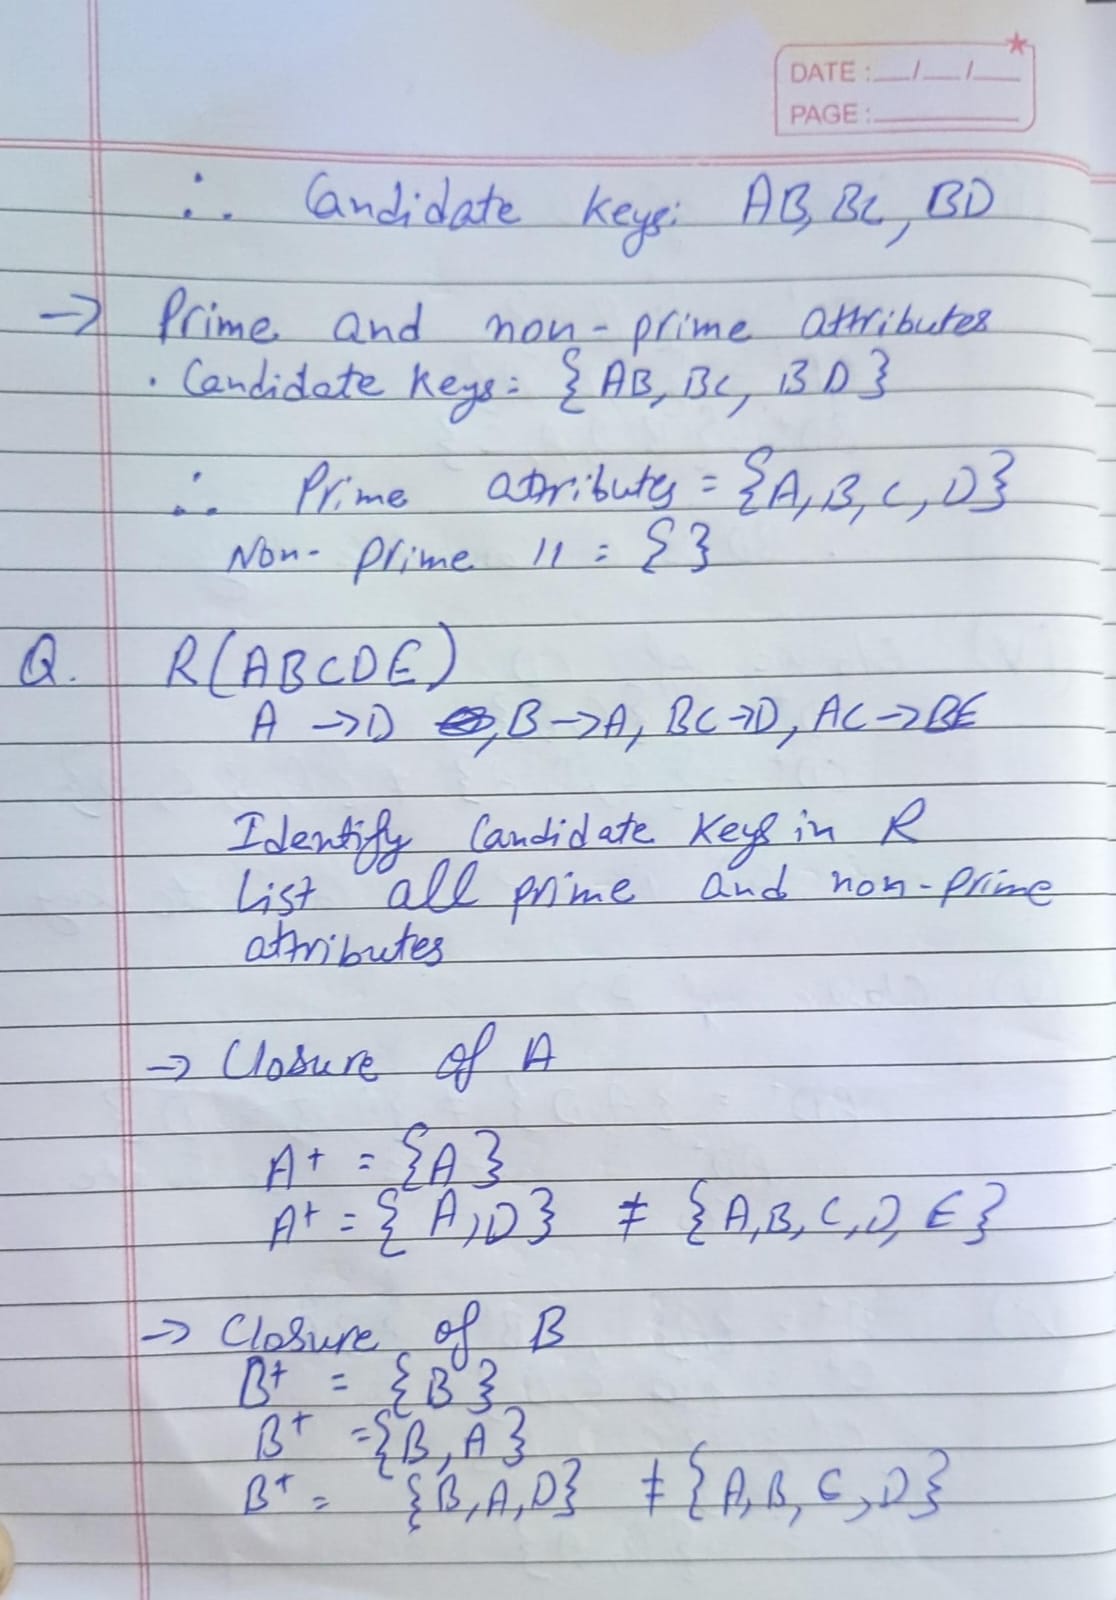 DATE : __/__/__
PAGE :
∴ Candidate keys: AB, BC, BD
→ Prime and non-prime attributes
· Candidate keys: {AB, BC, BD}
∴ Prime attributes = {A, B, C, D}
Non-prime 11 = { }
Q. R(ABCDE)
A → D , B → A, BC → D, AC → BE
Identify Candidate keys in R
List all prime and non-prime
attributes
→ Closure of A
A+ = {A}
A+ = {A, D} ≠ {A, B, C, D, E}
→ Closure of B
B+ = {B}
B+ = {B, A}
B+ = {B, A, D} ≠ {A, B, C, D}